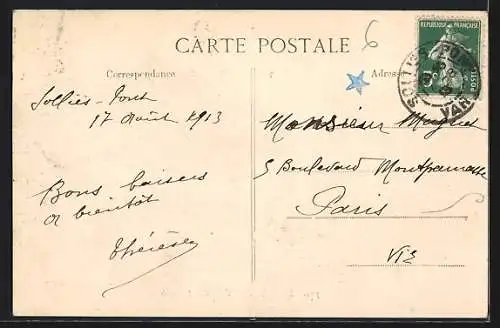 6
CARTE POSTALE
Correspondance
Adresse
REPUBLIQUE FRANÇAISE
POSTES
SOLLIÈS-PONT
VAR
Solliès-Pont
17 Août 1913
Bons baisers
à bientôt
Thérèse
Monsieur
5 Boulevard Montparnasse
Paris
VIE